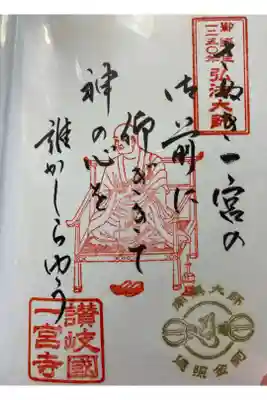 さぬき一宮の
御前に
仰ぎきて
神の心を
誰かしらゆう
弘法大師
讃岐國
一宮寺
南無大師
遍照金剛